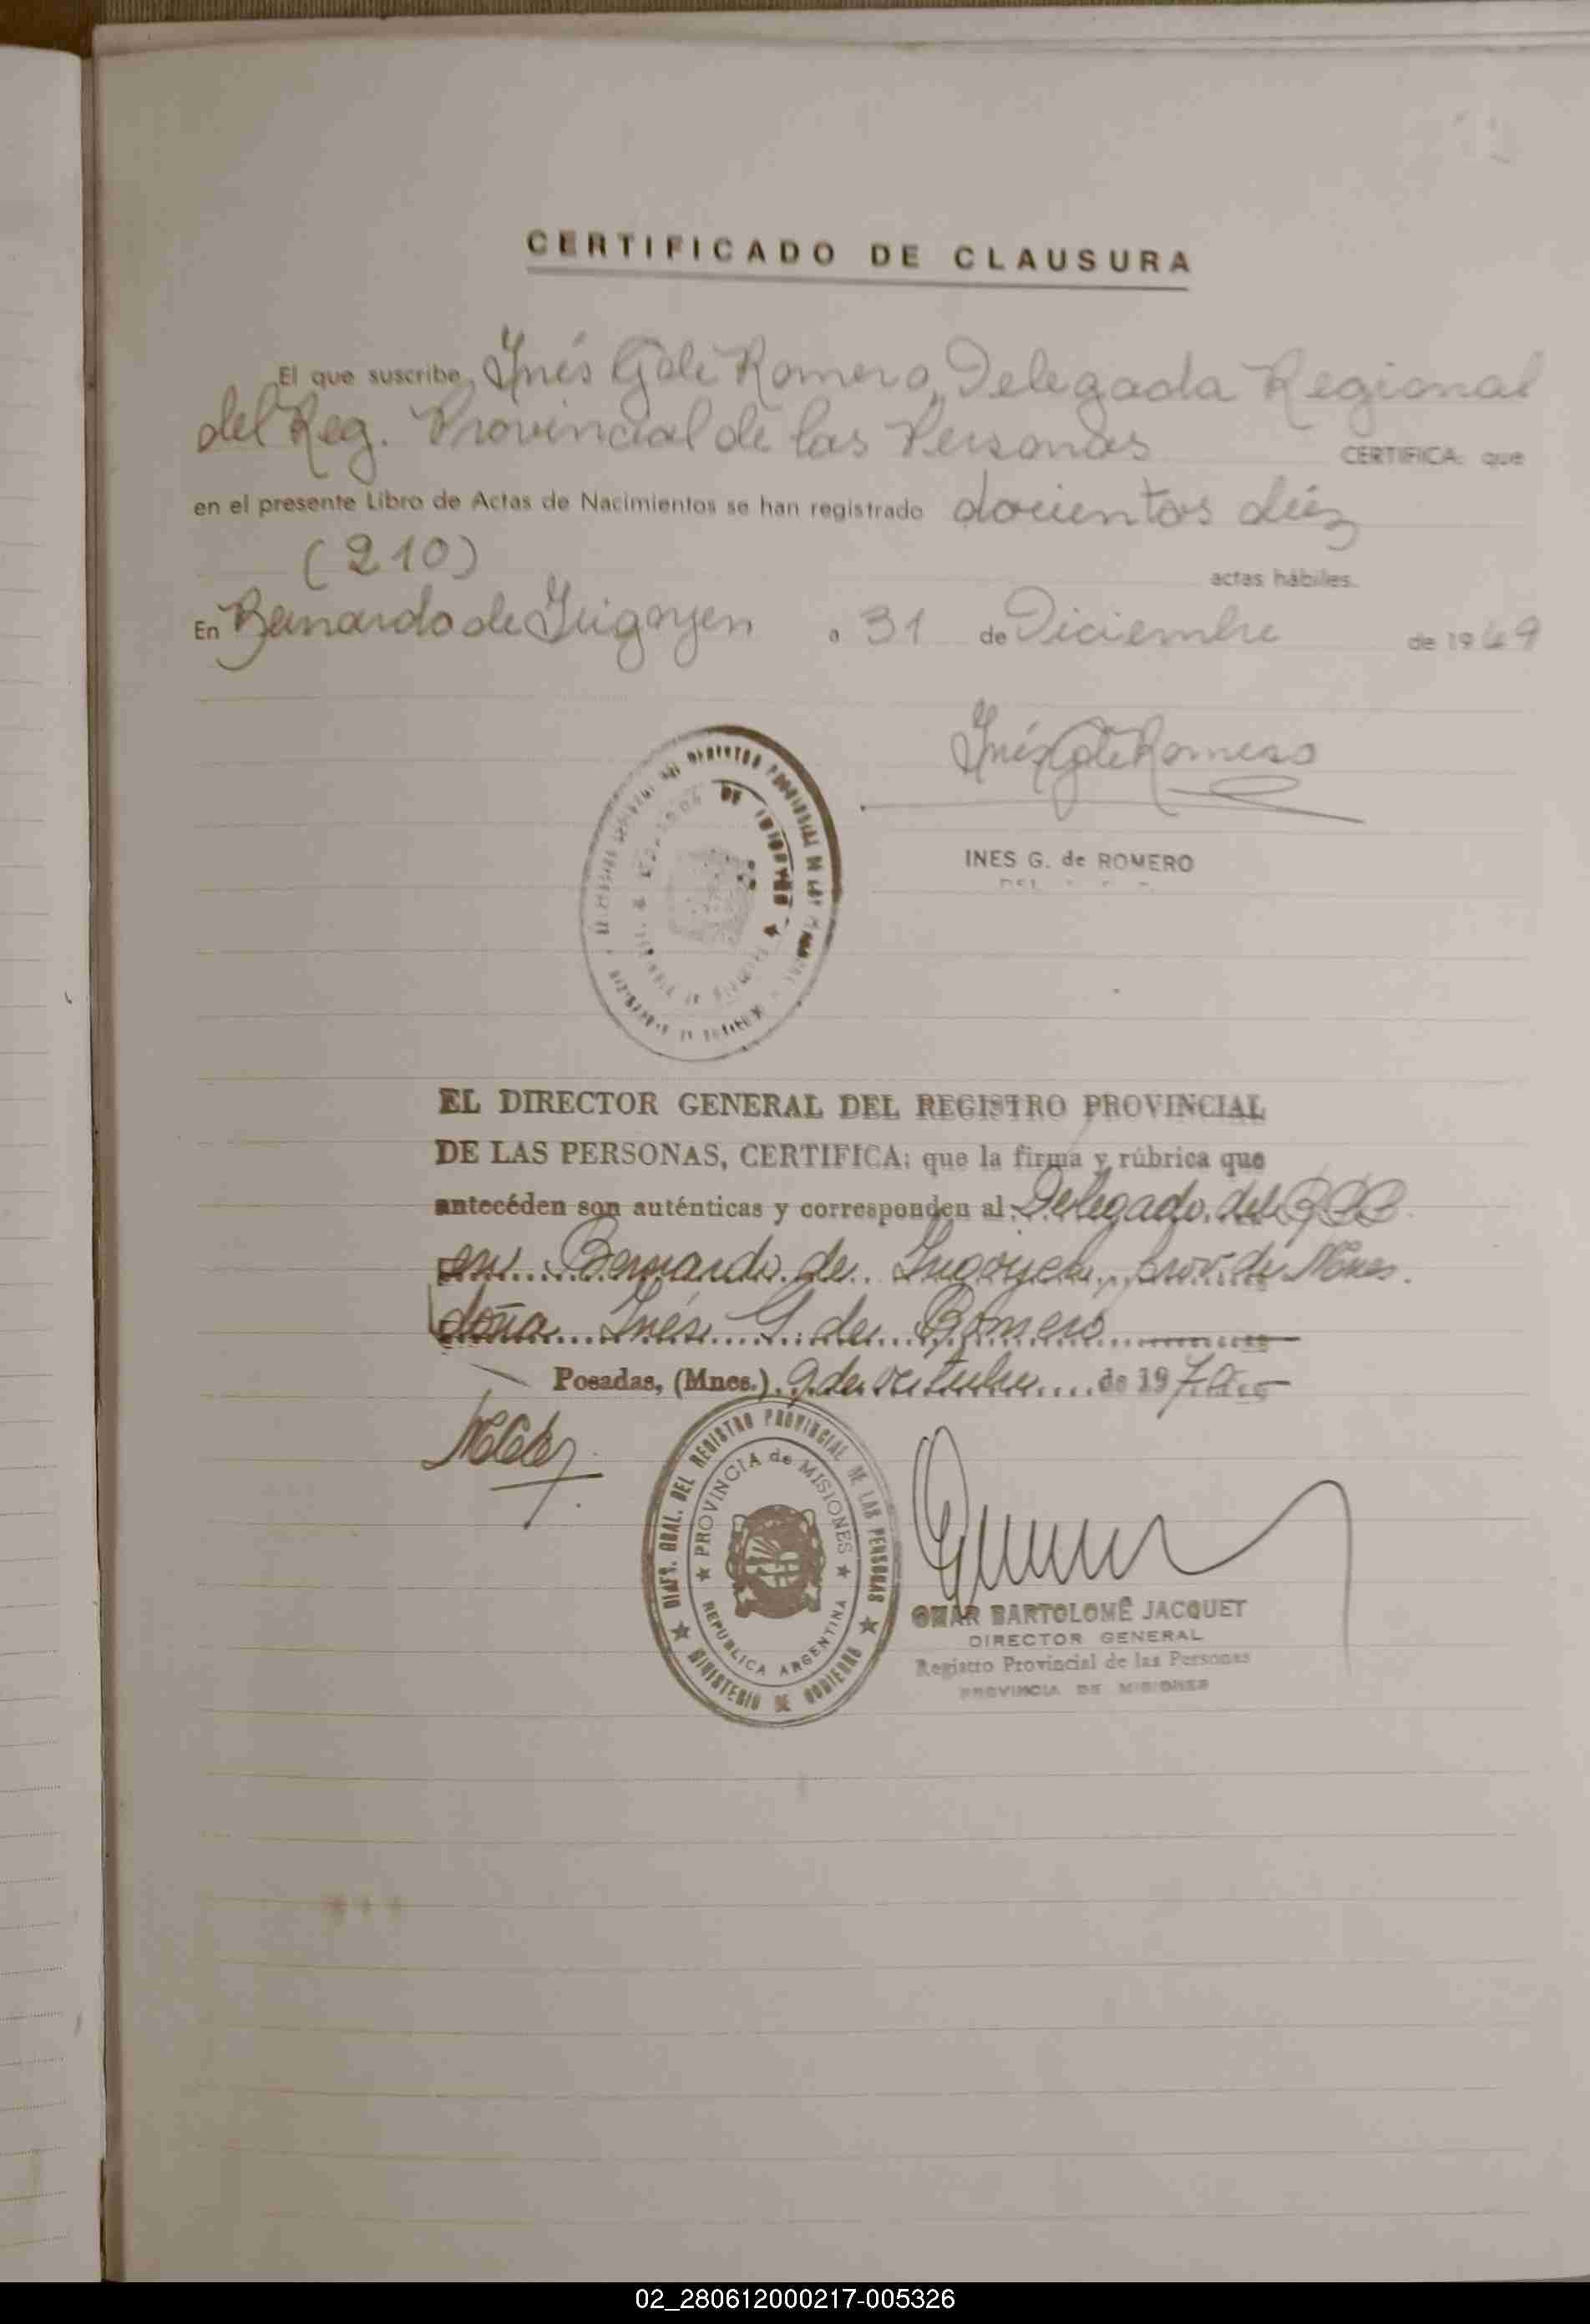 CERTIFICADO DE CLAUSURA
El que suscribe, Inés G. de Romero, Delegada Regional
del Reg. Provincial de las Personas CERTIFICA: que
en el presente Libro de Actas de Nacimientos se han registrado docientos diéz
(210)
actas hábiles.
En Bernardo de Irigoyen a 31 de Diciembre de 1969
Inés G de Romero
INES G. de ROMERO
EL DIRECTOR GENERAL DEL REGISTRO PROVINCIAL
DE LAS PERSONAS, CERTIFICA: que la firma y rúbrica que
antecéden son auténticas y corresponden al Delegado del RPP
en Bernardo de Irigoyen, prov. de Mnes.
doña Inés G. de Romero
Posadas, (Mnes.) 9 de octubre de 1970
DIREC. GRAL. DEL REGISTRO PROVINCIAL DE LAS PERSONAS
MINISTERIO DE GOBIERNO
PROVINCIA de MISIONES
REPUBLICA ARGENTINA
OMAR BARTOLOMÉ JACQUET
DIRECTOR GENERAL
Registro Provincial de las Personas
PROVINCIA DE MISIONES
02_280612000217-005326